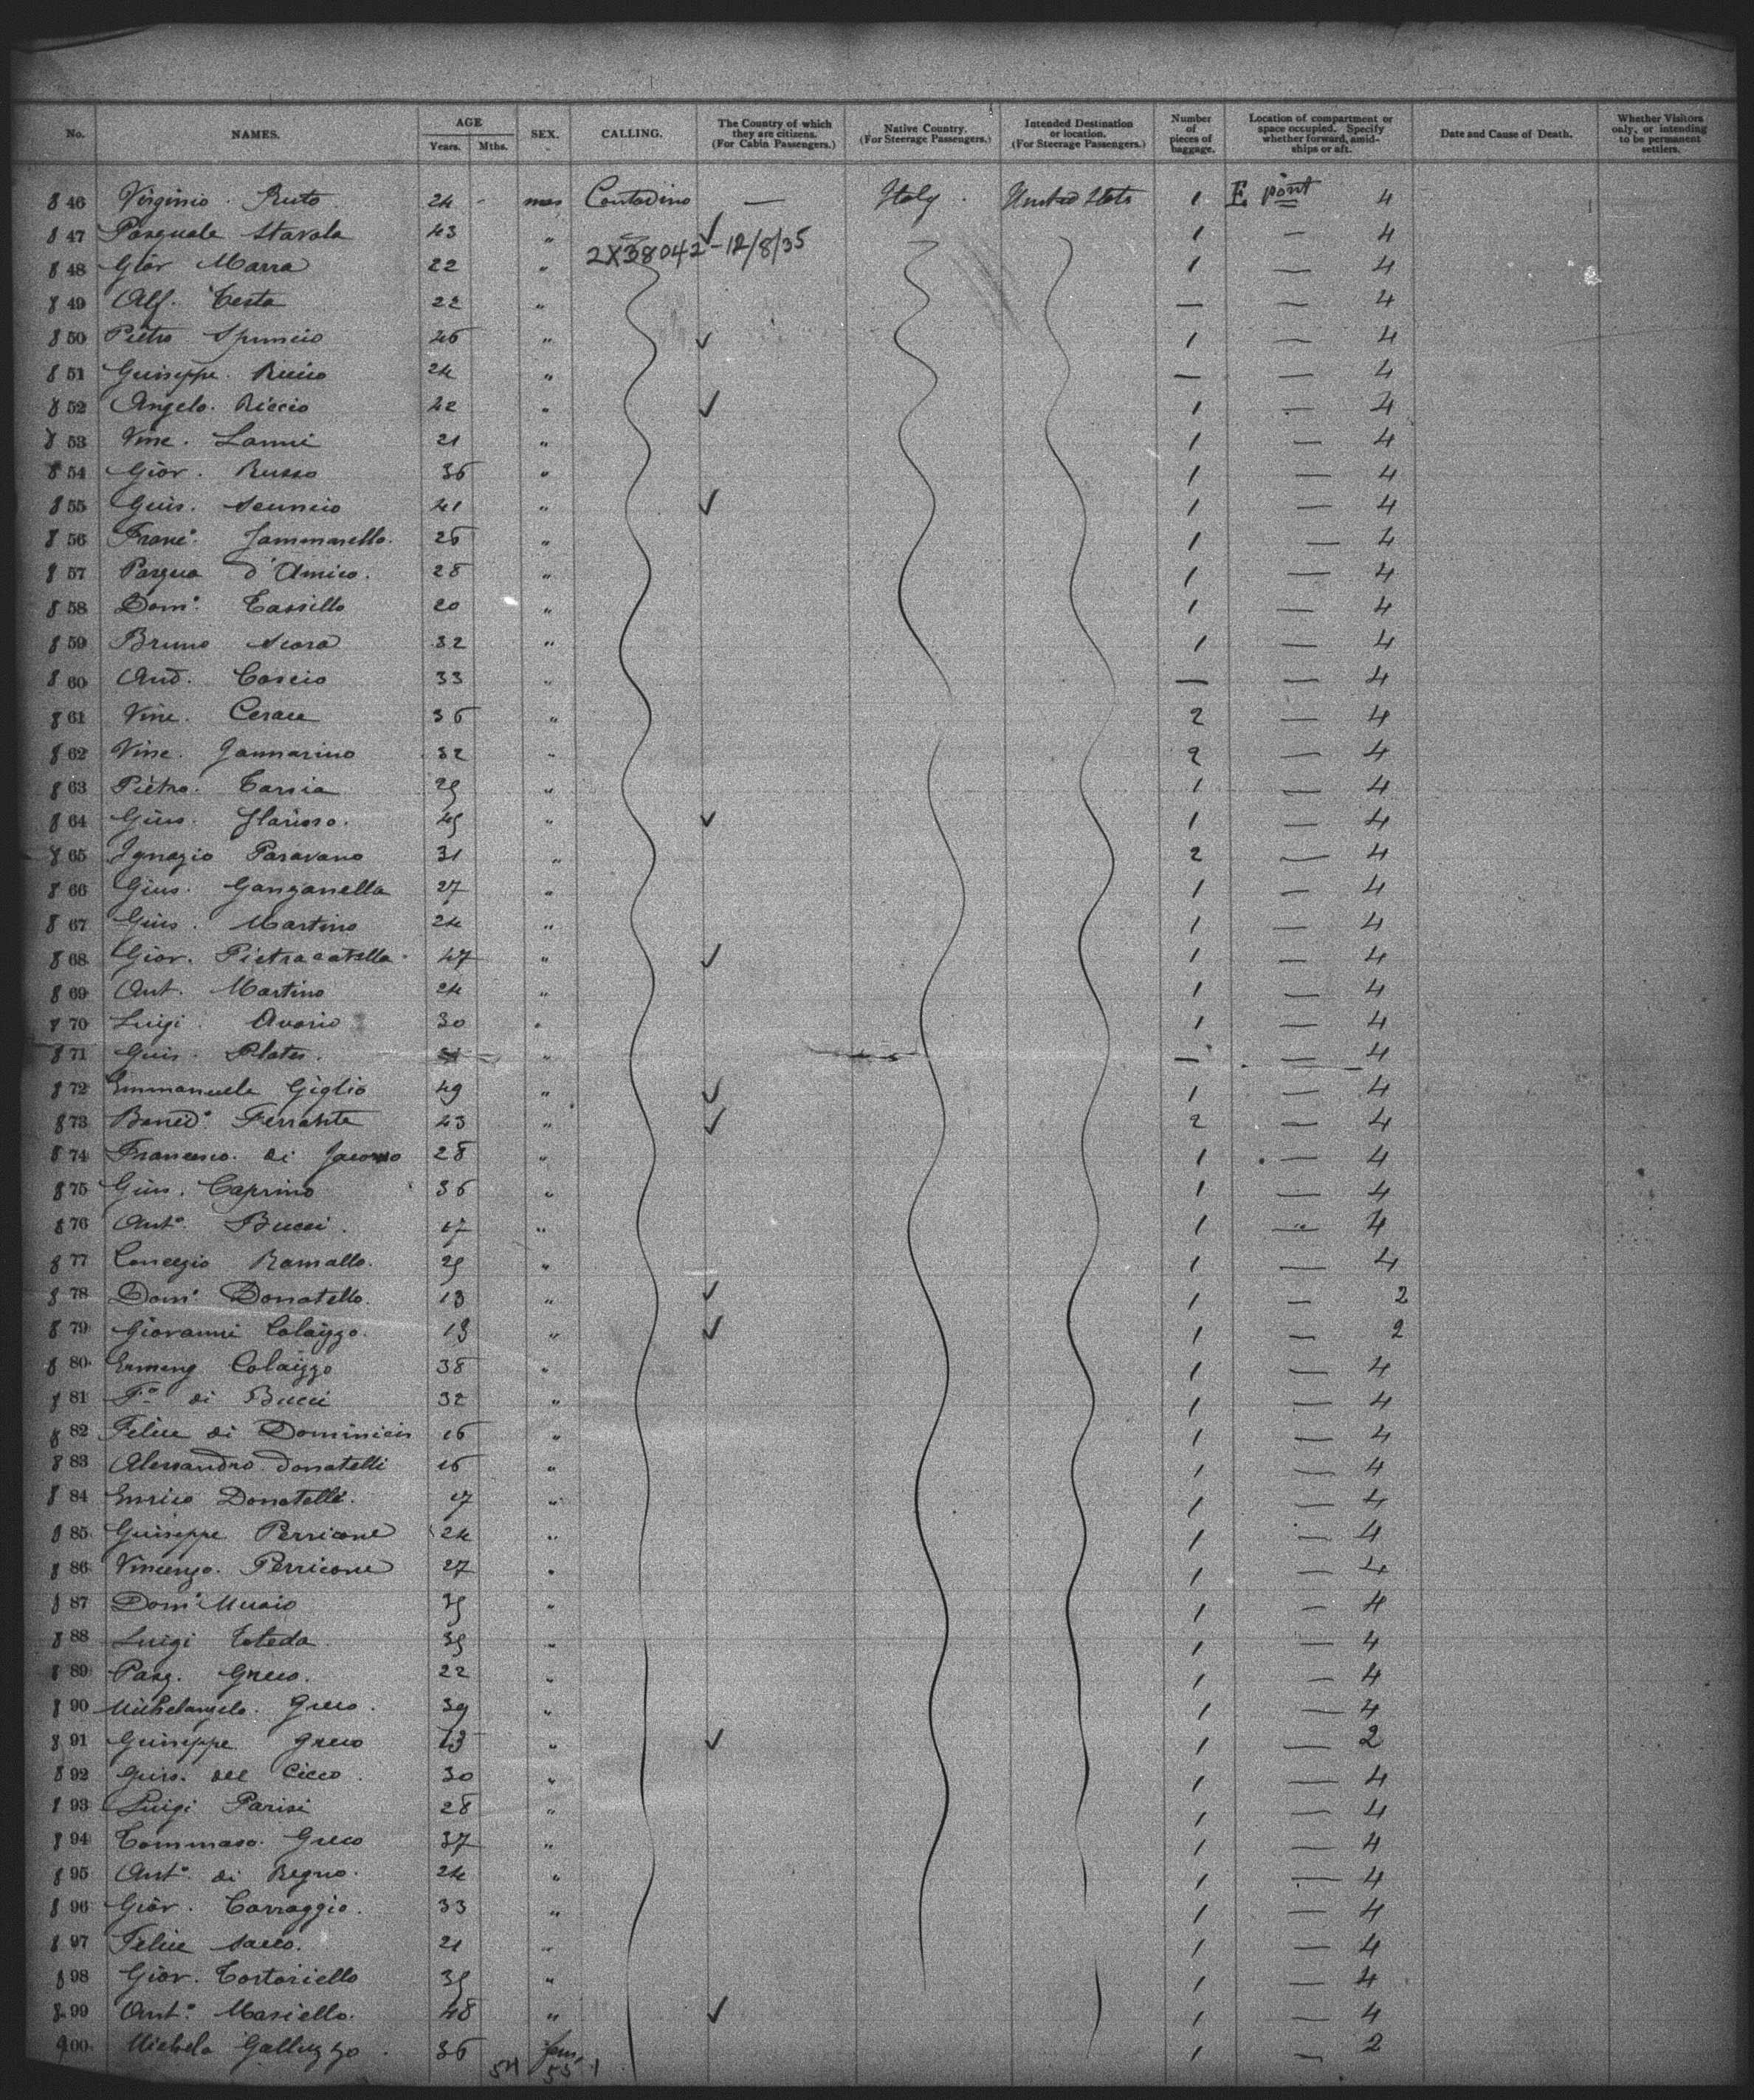 No. NAMES. AGE Years. Mths. SEX. CALLING. The Country of which they are citizens. (For Cabin Passengers.) Native Country. (For Steerage Passengers.) Intended Destination or location. (For Steerage Passengers.) Number of pieces of baggage. Location of compartment or space occupied. Specify whether forward, amidships or aft. Date and Cause of Death. Whether Visitors only, or intending to be permanent settlers.
846 Virginio Ruto 24 - mas Contadino — Italy United States 1 E pont 4
847 Pasquale Stavola 43 " ✓ 1 — 4
2X38042-12/8/35
848 Giov Marra 22 " 1 — 4
849 Alf. Testa 22 " — — 4
850 Pietro 46 " ✓ 1 — 4
851 Guiseppe Riccio 24 " — — 4
852 Angelo. Riccio 42 " ✓ 1 — 4
853 Vinc. Lanni 21 " 1 — 4
854 Giov. Russo 36 " 1 — 4
855 Guis. 41 " ✓ 1 — 4
856 Franc. Jammarello. 26 " 1 — 4
857 Pasqua d'Amico. 28 " 1 — 4
858 Dom. Tassillo 20 " 1 — 4
859 Bruno Scora 32 " 1 — 4
860 And. Cascio 33 " — — 4
861 Vinc. Cerace 36 " 2 — 4
862 Vinc. Jannarino 32 " 2 — 4
863 Pietro. Tarsia 29 " 1 — 4
864 Gius. Ilarioso. 45 " ✓ 1 — 4
865 Ignazio Paravano 31 " 2 — 4
866 Gius. Ganganella 27 " 1 — 4
867 Guis. Martino 24 " 1 — 4
868 Giov. Pietracatella 47 " ✓ 1 — 4
869 Ant. Martino 24 " 1 — 4
870 Luigi Avorio 30 " 1 — 4
871 Guis. " — — 4
872 Emmanuele Giglio 49 " ✓ 1 — 4
873 Bened. Ferrante 43 " ✓ 2 — 4
874 Francesco. di Jacovo 28 " 1 — 4
875 Gius. Caprino 36 " 1 — 4
876 Ant. Bucci. 17 " 1 " 4
877 Ramallo. 29 " 1 — 4
878 Dom. Donatello. 13 " ✓ 1 — 2
879 Giovanni Colaizzo. 13 " ✓ 1 — 2
880 Ermeng Colaizzo 38 " 1 — 4
881 Fo di Bucci 32 " 1 — 4
882 Felice di Dominicis 16 " 1 — 4
883 Alessandro Donatelli 16 " 1 — 4
884 Enrico Donatelli. 17 " 1 — 4
885 Guiseppe Perricone 24 " 1 — 4
886 Vincenzo. Perricone 27 " 1 — 4
887 Dom. 39 " 1 — 4
888 Luigi Toteda 39 " 1 — 4
889 Pasq. Greco. 22 " 1 — 4
890 Michelangelo. Greco. 39 " 1 — 4
891 Guiseppe Greco 13 " ✓ 1 — 2
892 Guis. del Cicco. 30 " 1 — 4
893 Luigi Parisi 28 " 1 — 4
894 Tommaso. Greco 37 " 1 — 4
895 Ant. di Regno. 24 " 1 — 4
896 Giov. Carraggio. 33 " 1 — 4
897 Felice Sacco. 21 " 1 — 4
898 Giov. Tortoriello 39 " 1 — 4
899 Ant. Masiello. 48 " ✓ 1 — 4
900 Michela Galluzzo. 36 fem. 1 — 2
54 55 1